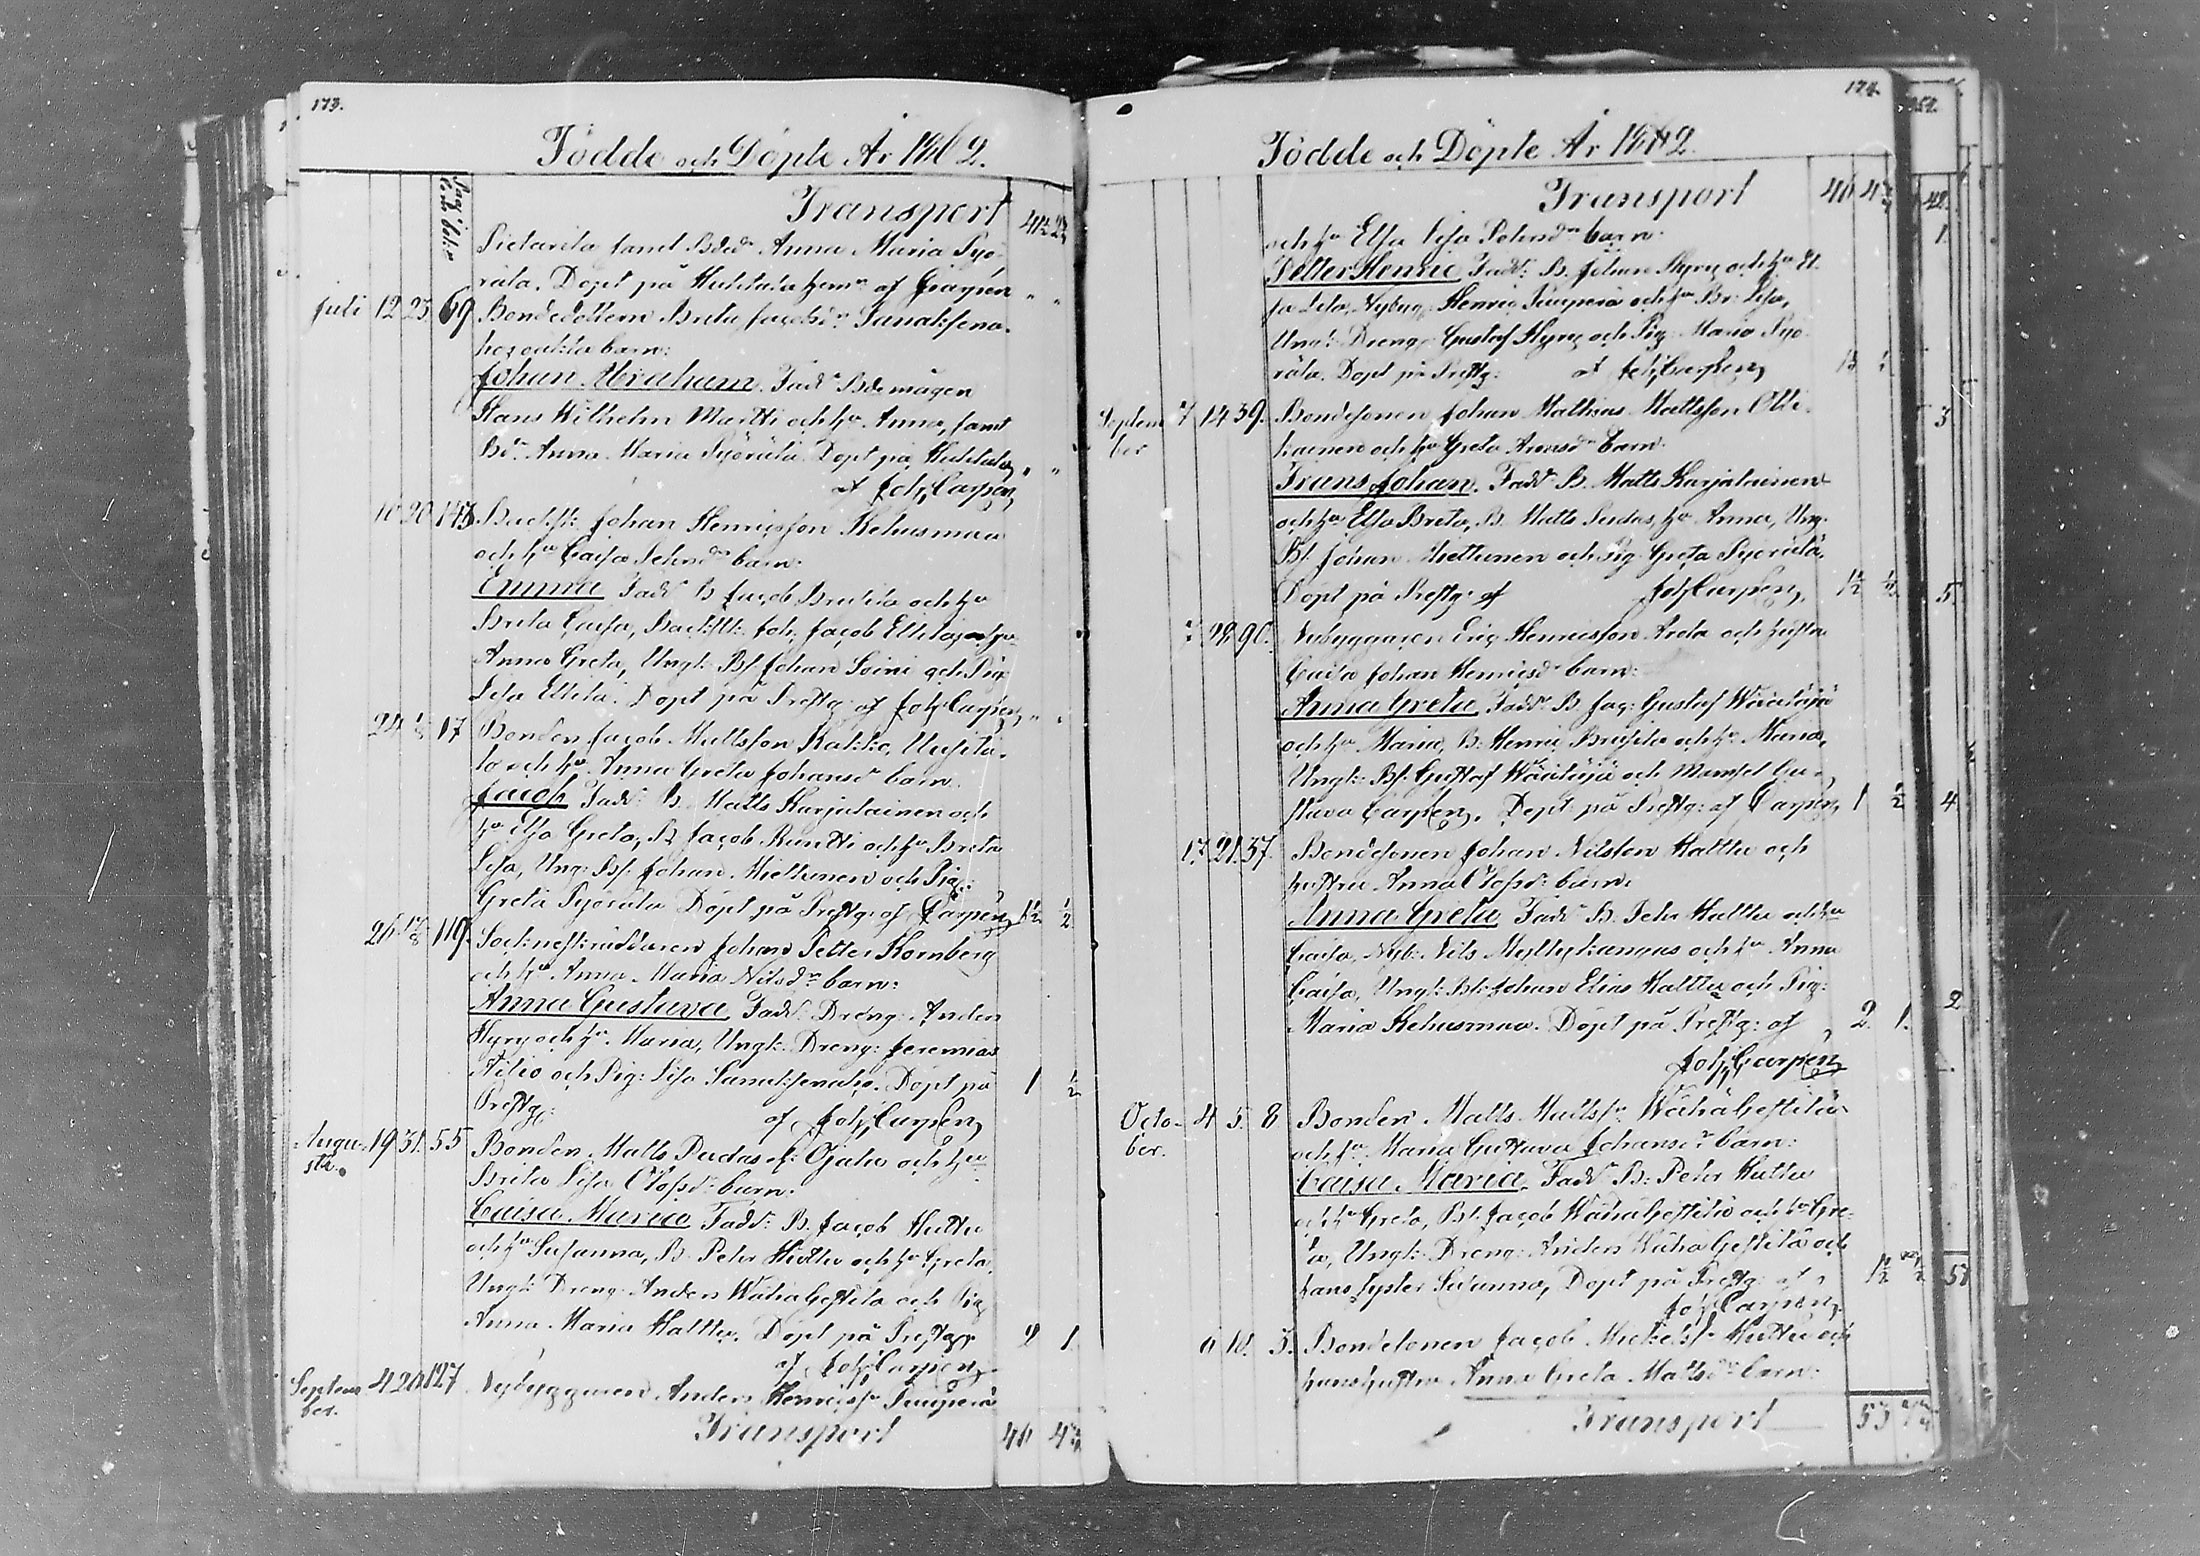 173.
Födde och Döpte År 1862.
Transport 41½
samt Bded:r Anna Maria Pyö-
rälä. Döpt på Huhtala hem:n af Carpén " "
Juli 12 23 69 Bondedottern Brita Jacobsd:r Sanaksena-
hos oäkta barn:
Johan Abraham. Fadd:r Bde mågen
Hans Wilhelm Martti och h:u Anna, samt
Bd:r Anna Maria Pyörälä. Döpt på Huhtala " "
af Joh. Carpén
10 20 Backst: Johan Henricsson Kehusmaa
och h:u Caisa barn:
Emma Fadd:r B Jacob och h:u
Brita Caisa, Backst: Joh. Jacob Ellilä och h:u
Anna Greta, Ungk: Bs. Johan Soini och Pig:
Lisa Ellilä. Döpt på Prestg: af Joh. Carpén " "
24 17 Bonden Jacob Mattsson Kakko, Uusita-
lo och h:u Anna Greta Johansd:r barn.
Jacob Fadd:r B. Matts Karjalainen och
h:u Elsa Greta, B. Jacob Runtti och h:u Brita
Lisa, Ung: Bs. Johan Miettunen och Pig:
Greta Pyörälä Döpt på Prestg: af Carpén 1½ ½
26 119 Sockneskräddaren Johan Petter Kornberg
och h:u Anna Maria Nilsd:r barn:
Anna Gustava, Fadd:r Dreng: Anders
Hyry och h:u Maria, Ungk: Dreng: Jeremias
Ailio och Pig: Lisa Sanaksenaho. Döpt på 1 ½
Prestg: af Joh. Carpén
Augu- 19 31. 55 Bonden Matts Pudas el: Ojala och h:u
sti. Brita Lisa Olofsd:r barn.
Caisa Maria Fadd:r B. Jacob Huttu
och h:u Susanna, B. Petter Huttu och h:u Greta,
Ungk: Dreng Anders Wähä Gestilä och Pig
Anna Maria Halttu. Döpt på Prestg: 2 1.
af Joh. Carpén
Septem- 4 127 Nybyggaren Anders Henricss:n
ber.
Transport

174.
Födde och Döpte År 1862.
Transport
och h:u Elsa Lisa barn:
Petter Henric Fadd:r B. Johan Hyry och h:u El-
sa Lisa, Nybyg: Henric och h:u Br: Lisa,
Ungk: Dreng: Gustaf Hyry och Pig: Maria Pyö-
rälä. Döpt på Prestg: af Joh. Carpén
Septem- 7 14 39. Bondesonen Johan Mathias Mattsson Olli-
ber kainen och h:u Greta Aronsd:r barn.
Frans Johan. Fadd:r B. Matts Karjalainen
och h:u Elsa Brita, B. Matts Pudas, h:u Anna, Ung-
Bs. Johan Miettunen och Pig. Greta Pyörälä,
Döpt på Prestg: af Joh. Carpén 1½ ½
7 28 90. Nybyggaren Eric Henricsson Arola och hustru
Caisa Johan Henricsd:r barn:
Anna Greta Fadd:r B. Jac: Gustaf Wäälajä
och h:u Maria, B. Henric och h:u Maria,
Ungk: Bs: Gustaf Wäälajä och Mamsel Gu-
stava Carpén. Döpt på Prestg: af Carpén 1 ½
17. 21. 57. Bondesonen Johan Nilsson Halttu och
hustru Anna Olofsd:r barn:
Anna Greta Fadd:r B. Petr Halttu och h:u
Caisa, Nyb: Nils Myllykangas och h:u Anna
Caisa, Ungk: Bs: Johan Elias Halttu och Pig:
Maria Kehusmaa. Döpt på Prestg: af 2. 1.
Joh. Carpén
Octo- 4 5. 8 Bonden Matts Mattss:n Wähä Gestilä
ber. och h:u Maria Gustava Johansd:r barn:
Caisa Maria. Fadd:r B: Petr Huttu
och h:u Greta, Bs. Jacob Wähä Gestilä och h:u Gre-
ta, Ungk: Dreng: Anders Wähä Gestilä och
hans syster Susanna, Döpt på Prestg: af 1½ ½
Joh. Carpén.
5. Bondesonen Jacob Mickelss:n Huttu och
hans hustru Anna Greta Mattsd:r barn:
Transport 53